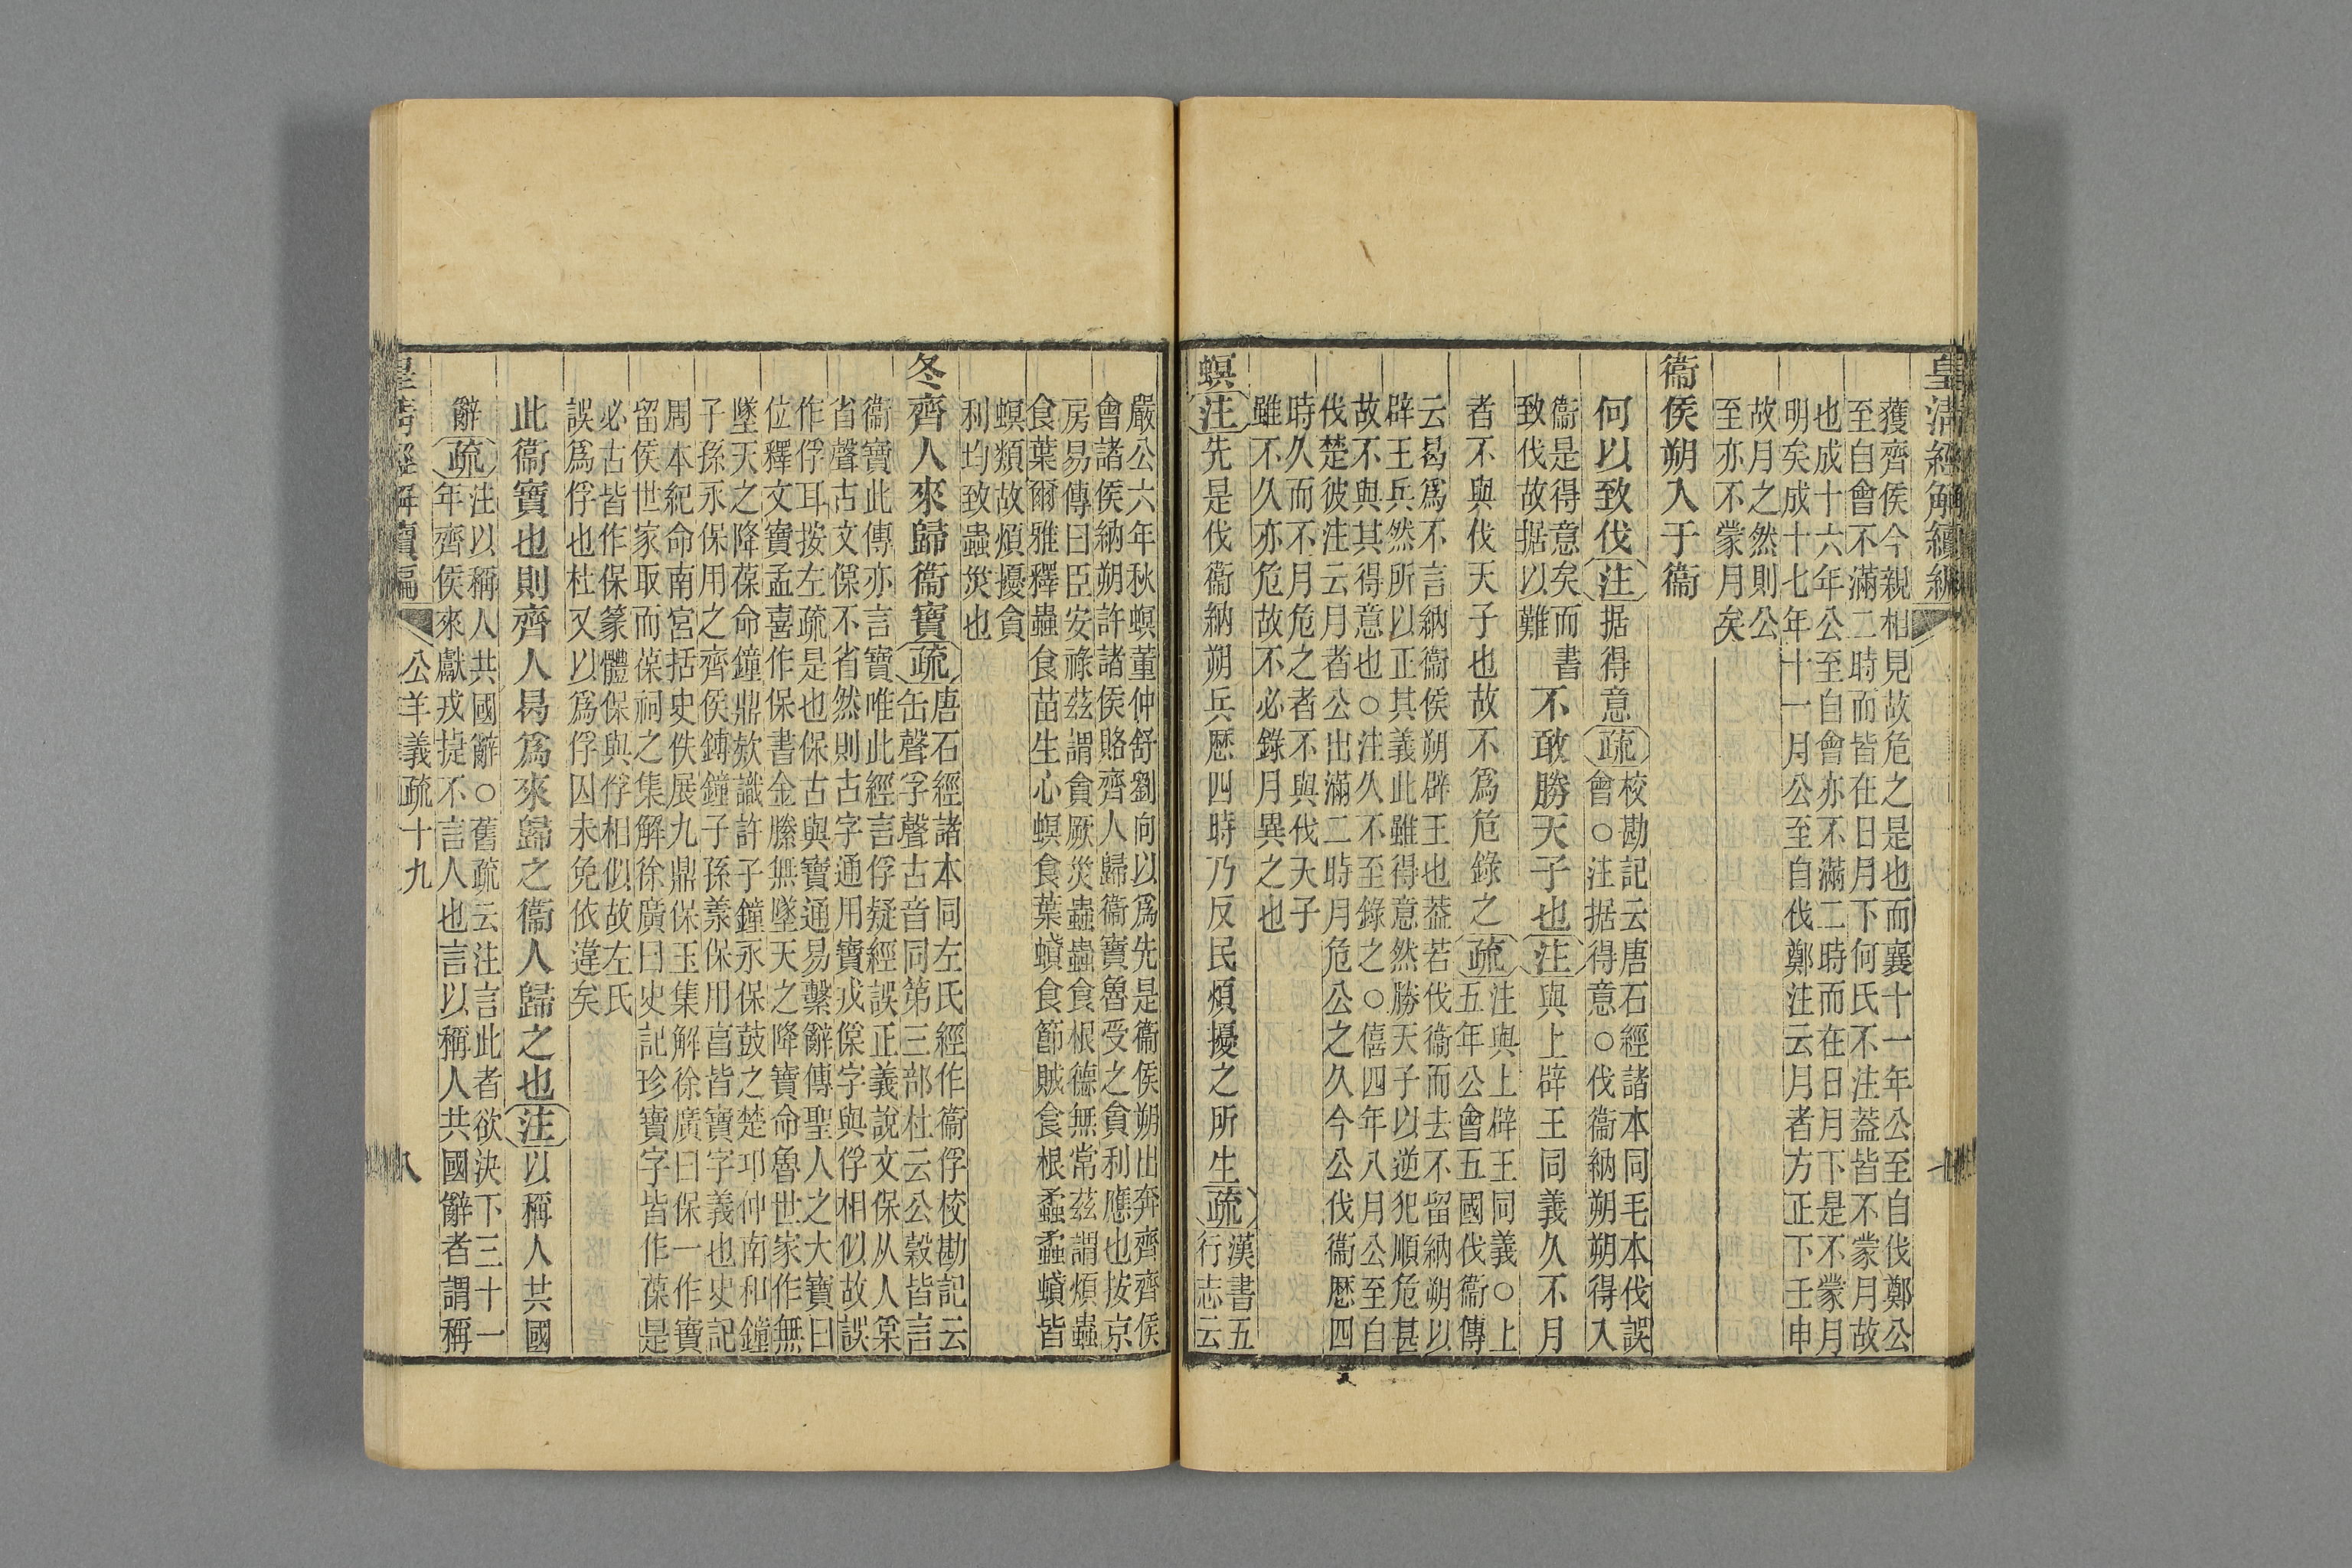 皇清經解續編
獲齊侯今親相見故危之是也而襄十一年公至自伐鄭公
至自會不滿二時而皆在日月下何氏不注葢皆不蒙月故
也成十六年公至自會亦不滿二時而在日月下是不蒙月
明矣成十七年十一月公至自伐鄭注云月者方正下壬申
故月之然則公
至亦不蒙月矣
衞侯朔入于衞
何以致伐注据得意疏
校勘記云唐石經諸本同毛本伐誤
會○注据得意○伐衞納朔朔得入
衞是得意矣而書
致伐故据以難
不敢勝天子也注與上辟王同義久不月
者不與伐天子也故不爲危錄之疏
注與上辟王同義○上
五年公會五國伐衞傳
云曷爲不言納衞侯朔辟王也葢若伐衞而去不留納朔以
辟王兵然所以正其義此雖得意然勝天子以逆犯順危甚
故不與其得意也○注久不至錄之○僖四年八月公至自
伐楚彼注云月者公出滿二時月危公之久今公伐衞歴四
時久而不月危之者不與伐天子
雖不久亦危故不必錄月異之也
螟注先是伐衞納朔兵歷四時乃反民煩擾之所生疏
漢書五
行志云
嚴公六年秋螟董仲舒劉向以爲先是衞侯朔出奔齊齊侯
會諸侯納朔許諸侯賂齊人歸衞寶魯受之貪利應也按京
房易傳曰臣安祿茲謂貪厥災蟲蟲食根德無常茲謂煩蟲
食葉爾雅釋蟲食苗生心螟食葉蟘食節賊食根蟊蟊蟘皆
螟類故煩擾貪
利均致蟲災也
冬齊人來歸衞寶疏
唐石經諸本同左氏經作衞俘校勘記云
缶聲孚聲古音同第三部杜云公穀皆言
衞寶此傳亦言寶唯此經言俘疑經誤正義說文保从人𤔍
省聲古文保不省然則古字通用寶或保字與俘相似故誤
作俘耳按左疏是也保古與寶通易繫辭傳聖人之大寶曰
位釋文寶孟喜作保書金縢無墜天之降寶命魯世家作無
墜天之降葆命鐘鼎欵識許子鐘永保鼓之楚邛仲南和鐘
子孫永保用之齊侯鎛鐘子孫羕保用亯皆寶字義也史記
周本紀命南宮括史佚展九鼎保玉集解徐廣曰保一作寶
留侯世家取而葆祠之集解徐廣曰史記珍寶字皆作葆是
必古皆作保篆體保與俘相似故左氏
誤爲俘也杜又以爲俘囚未免依違矣
此衞寶也則齊人曷爲來歸之衞人歸之也注以稱人共國
辭疏
注以稱人共國辭○舊疏云注言此者欲決下三十一
年齊侯來獻戎捷不言人也言以稱人共國辭者謂稱
皇清經解續編 公羊義疏十九 八